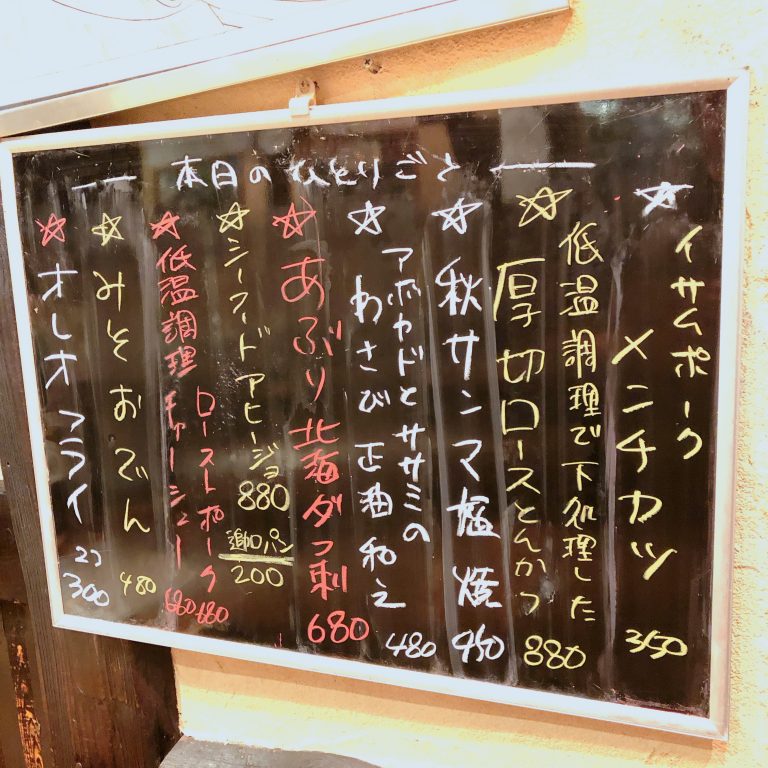 本日のひとりごと
☆イサムポーク
メンチカツ 350
低温調理で下処理した
☆厚切ロースとんかつ 880
☆秋サンマ塩焼 450
☆アボカドとササミの
わさび正油和え 480
☆あぶり北海ダコ刺 680
☆シーフードアヒージョ 880
追加パン 200
☆低温調理 ローストポーク 680
チャーシュー 680
☆みそおでん 480
☆オレオフライ 2コ 300